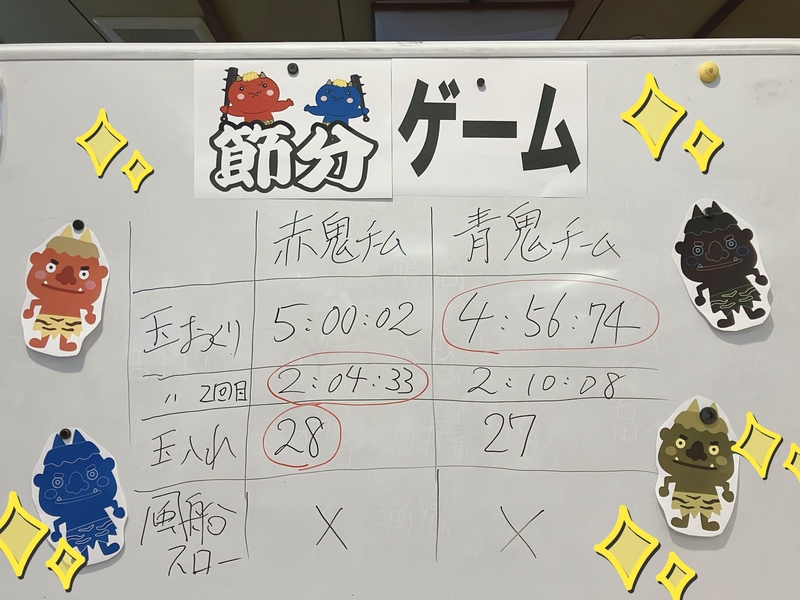 節分 ゲーム
赤鬼チム 青鬼チーム
玉おくり 5:00:02 4:56:74
〃 2回目 2:04:33 2:10:08
玉入れ 28 27
風船スロー × ×